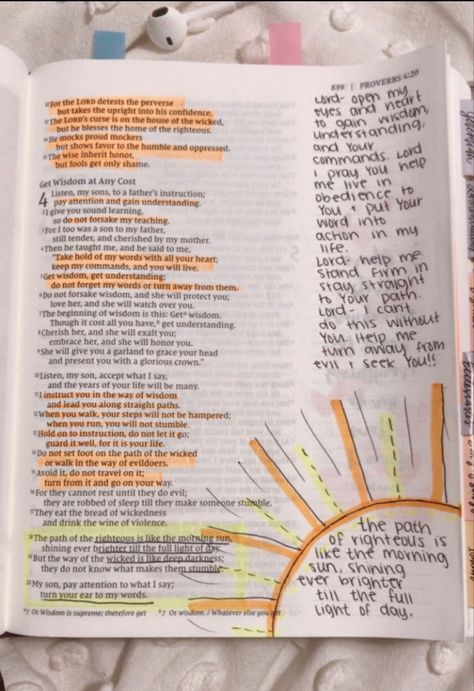 839 | PROVERBS 4:20
32 For the LORD detests the perverse
but takes the upright into his confidence.
33 The LORD's curse is on the house of the wicked,
but he blesses the home of the righteous.
34 He mocks proud mockers
but shows favor to the humble and oppressed.
35 The wise inherit honor,
but fools get only shame.
Get Wisdom at Any Cost
4 Listen, my sons, to a father's instruction;
pay attention and gain understanding.
2 I give you sound learning,
so do not forsake my teaching.
3 For I too was a son to my father,
still tender, and cherished by my mother.
4 Then he taught me, and he said to me,
"Take hold of my words with all your heart;
keep my commands, and you will live.
5 Get wisdom, get understanding;
do not forget my words or turn away from them.
6 Do not forsake wisdom, and she will protect you;
love her, and she will watch over you.
7 The beginning of wisdom is this: Get a wisdom.
Though it cost all you have, b get understanding.
8 Cherish her, and she will exalt you;
embrace her, and she will honor you.
9 She will give you a garland to grace your head
and present you with a glorious crown."
10 Listen, my son, accept what I say,
and the years of your life will be many.
11 I instruct you in the way of wisdom
and lead you along straight paths.
12 When you walk, your steps will not be hampered;
when you run, you will not stumble.
13 Hold on to instruction, do not let it go;
guard it well, for it is your life.
14 Do not set foot on the path of the wicked
or walk in the way of evildoers.
15 Avoid it, do not travel on it;
turn from it and go on your way.
16 For they cannot rest until they do evil;
they are robbed of sleep till they make someone stumble.
17 They eat the bread of wickedness
and drink the wine of violence.
18 The path of the righteous is like the morning sun,
shining ever brighter till the full light of day.
19 But the way of the wicked is like deep darkness;
they do not know what makes them stumble.
20 My son, pay attention to what I say;
turn your ear to my words.
a 7 Or Wisdom is supreme; therefore get b 7 Or wisdom. / Whatever else you get
Lord- open my
eyes and heart
to gain wisdom,
understanding,
and your
commands. Lord
i pray you help
me live in
obedience to
you + put your
word into
action in my
life.
Lord- help me
stand firm in
stay straight
to your path.
Lord- i cant
do this without
you. Help me
turn away from
evil + seek you!!
the path
of righteous is
like the morning
sun, shining
ever brighter
till the full
light of day.